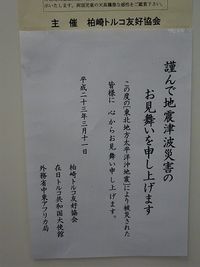 主 催 柏崎トルコ友好協会
謹んで地震津波災害の
お見舞いを申し上げます
この度の「東北地方太平洋沖地震」により被災された
皆様に 心からお見舞い申し上げます。
平成二十三年三月十一日
柏崎トルコ友好協会
在日トルコ共和国大使館
外務省中東アフリカ局